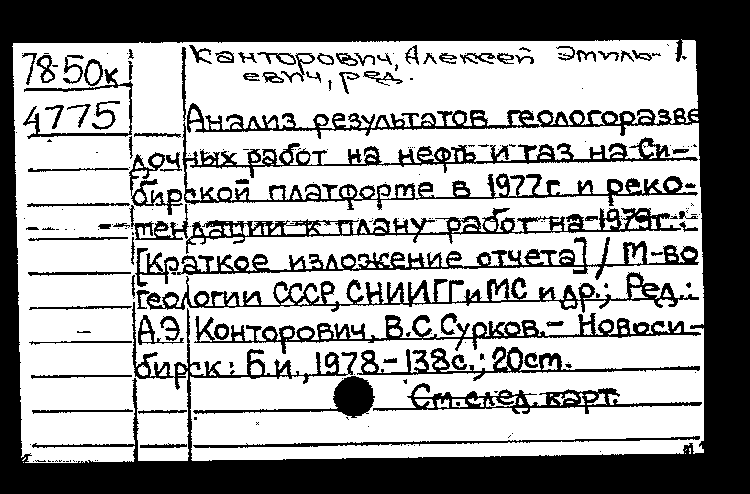 78-50к Канторович, Алексей Эмиль- 1.
евич, ред.
4775 Анализ результатов геологоразве
дочных работ на нефть и газ на Си-
бирской платформе в 1977г. и реко-
мендации к плану работ на 1979г.:
[Краткое изложение отчета] / М-во
геологии СССР, СНИИГГиМС и др.; Ред.:
А.Э. Конторович, В.С. Сурков.- Новоси-
бирск: Б.и., 1978.-138с.; 20см.
См. след. карт.